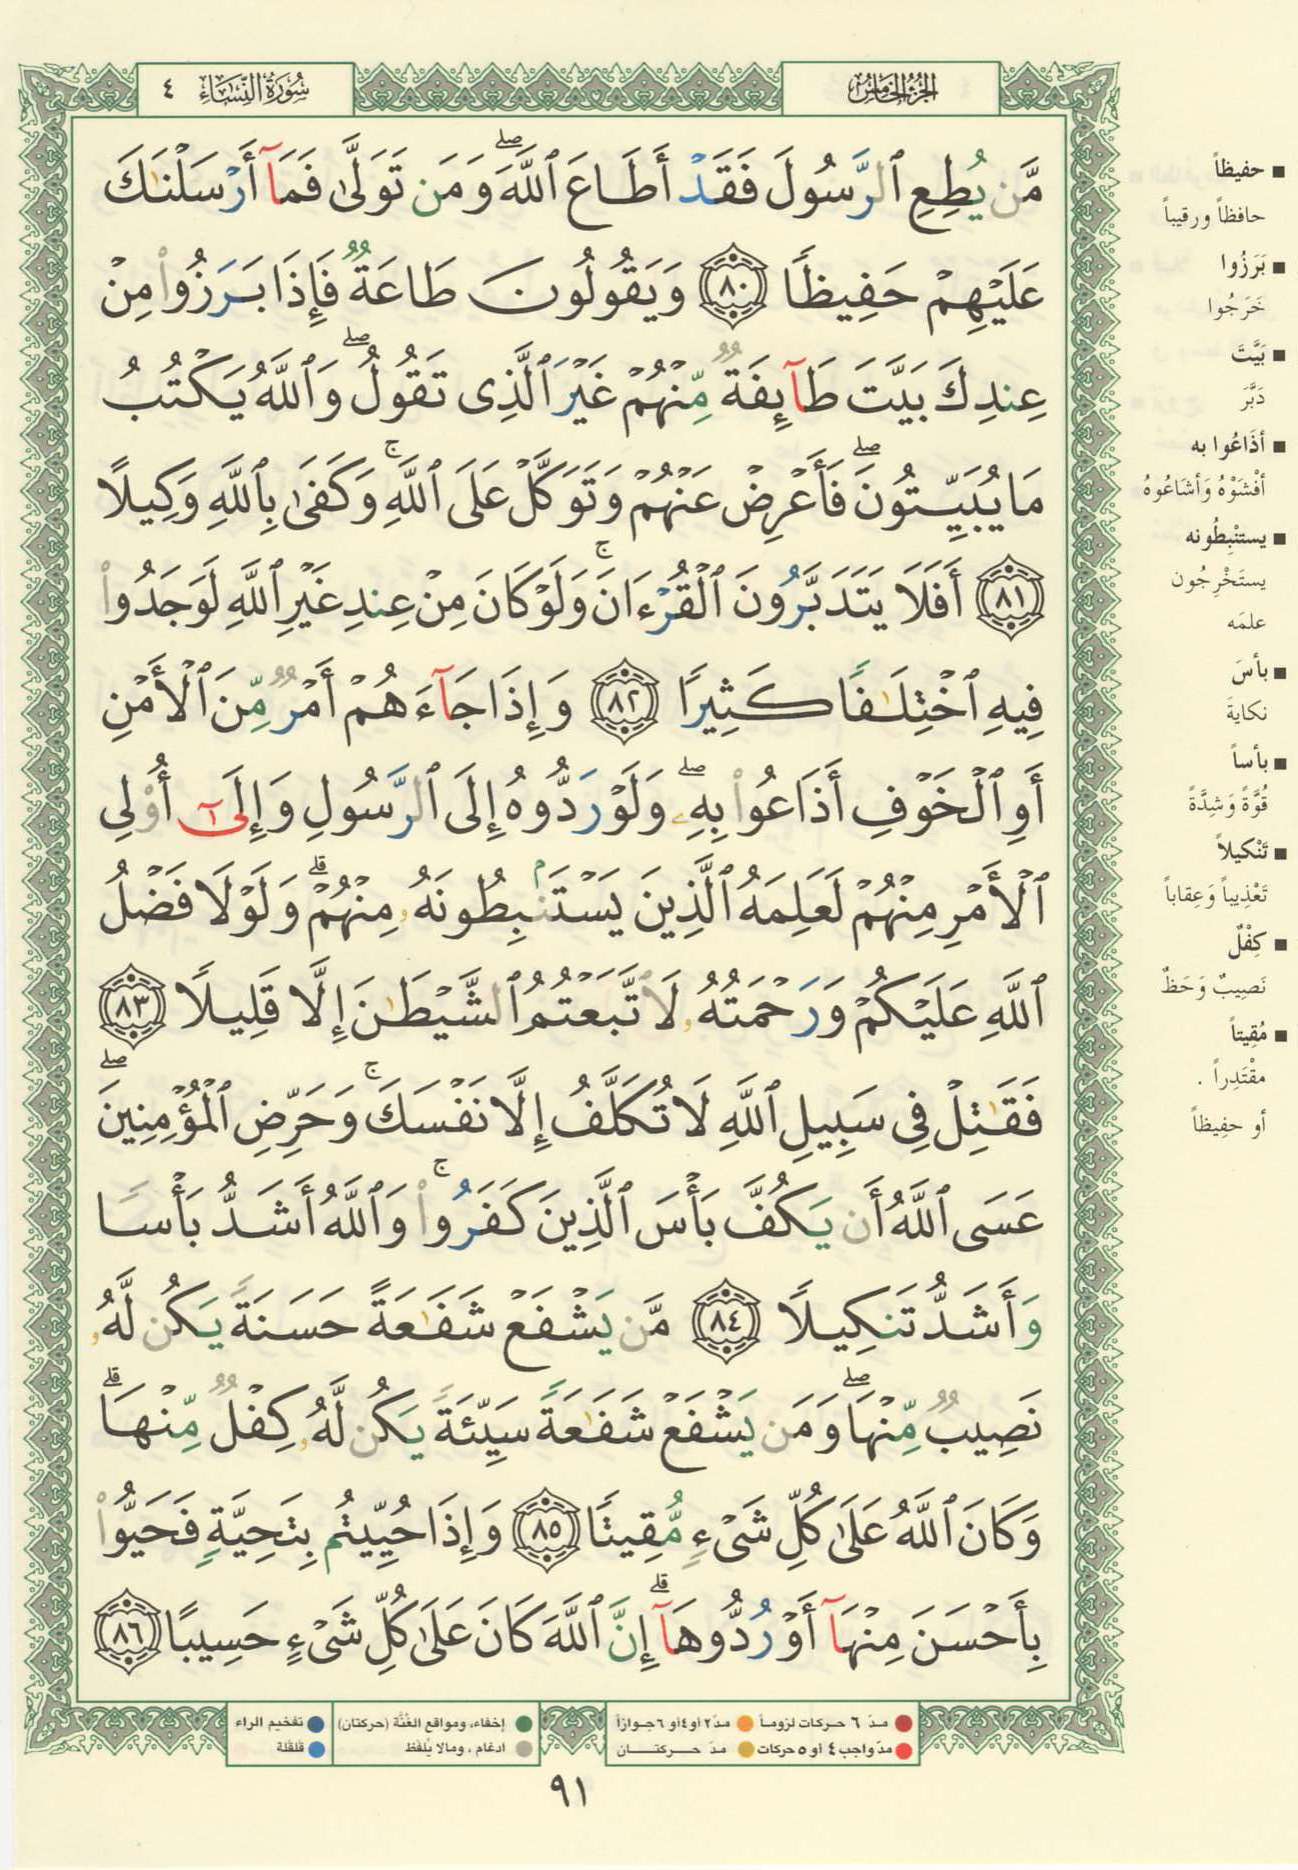 سُورَةُ النِّسَاءِ ٤
الجُزْءُ الخَامِسُ
مَّن يُطِعِ ٱلرَّسُولَ فَقَدْ أَطَاعَ ٱللَّهَ ۖ وَمَن تَوَلَّىٰ فَمَآ أَرْسَلْنَٰكَ
عَلَيْهِمْ حَفِيظًا ﴿٨٠﴾ وَيَقُولُونَ طَاعَةٌ فَإِذَا بَرَزُوا۟ مِنْ
عِندِكَ بَيَّتَ طَآئِفَةٌ مِّنْهُمْ غَيْرَ ٱلَّذِى تَقُولُ ۖ وَٱللَّهُ يَكْتُبُ
مَا يُبَيِّتُونَ ۖ فَأَعْرِضْ عَنْهُمْ وَتَوَكَّلْ عَلَى ٱللَّهِ ۚ وَكَفَىٰ بِٱللَّهِ وَكِيلًا
﴿٨١﴾ أَفَلَا يَتَدَبَّرُونَ ٱلْقُرْءَانَ ۚ وَلَوْ كَانَ مِنْ عِندِ غَيْرِ ٱللَّهِ لَوَجَدُوا۟
فِيهِ ٱخْتِلَٰفًا كَثِيرًا ﴿٨٢﴾ وَإِذَا جَآءَهُمْ أَمْرٌ مِّنَ ٱلْأَمْنِ
أَوِ ٱلْخَوْفِ أَذَاعُوا۟ بِهِۦ ۖ وَلَوْ رَدُّوهُ إِلَى ٱلرَّسُولِ وَإِلَىٰٓ أُو۟لِى
ٱلْأَمْرِ مِنْهُمْ لَعَلِمَهُ ٱلَّذِينَ يَسْتَنۢبِطُونَهُۥ مِنْهُمْ ۗ وَلَوْلَا فَضْلُ
ٱللَّهِ عَلَيْكُمْ وَرَحْمَتُهُۥ لَٱتَّبَعْتُمُ ٱلشَّيْطَٰنَ إِلَّا قَلِيلًا ﴿٨٣﴾
فَقَٰتِلْ فِى سَبِيلِ ٱللَّهِ لَا تُكَلَّفُ إِلَّا نَفْسَكَ ۚ وَحَرِّضِ ٱلْمُؤْمِنِينَ ۖ
عَسَى ٱللَّهُ أَن يَكُفَّ بَأْسَ ٱلَّذِينَ كَفَرُوا۟ ۚ وَٱللَّهُ أَشَدُّ بَأْسًا
وَأَشَدُّ تَنكِيلًا ﴿٨٤﴾ مَّن يَشْفَعْ شَفَٰعَةً حَسَنَةً يَكُن لَّهُۥ
نَصِيبٌ مِّنْهَا ۖ وَمَن يَشْفَعْ شَفَٰعَةً سَيِّئَةً يَكُن لَّهُۥ كِفْلٌ مِّنْهَا ۗ
وَكَانَ ٱللَّهُ عَلَىٰ كُلِّ شَىْءٍ مُّقِيتًا ﴿٨٥﴾ وَإِذَا حُيِّيتُم بِتَحِيَّةٍ فَحَيُّوا۟
بِأَحْسَنَ مِنْهَآ أَوْ رُدُّوهَآ ۗ إِنَّ ٱللَّهَ كَانَ عَلَىٰ كُلِّ شَىْءٍ حَسِيبًا ﴿٨٦﴾
■ حفيظاً
حافظاً ورقيباً
■ بَرَزُوا
خَرَجُوا
■ بَيَّتَ
دَبَّرَ
■ أذَاعُوا به
أفْشَوْهُ وَأشَاعُوهُ
■ يستنْبِطُونه
يستَخْرِجُون
علمَه
■ بأسَ
نكايةَ
■ بأساً
قُوَّةً وَشِدَّةً
■ تَنْكيلاً
تَعْذِيباً وَعِقاباً
■ كِفْلٌ
نَصِيبٌ وَحَظٌ
■ مُقِيتاً
مقْتَدِراً .
أو حفِيظاً
مدّ ٦ حركات لزوماً ● مدّ ٢ أو ٤ أو ٦ جوازاً
مدّ واجب ٤ أو ٥ حركات ● مدّ حركتان
إخفاء، ومواقع الغُنَّة (حركتان) ● تفخيم الراء
ادغام ، ومالا يُلفَظ ● قلقلة
٩١